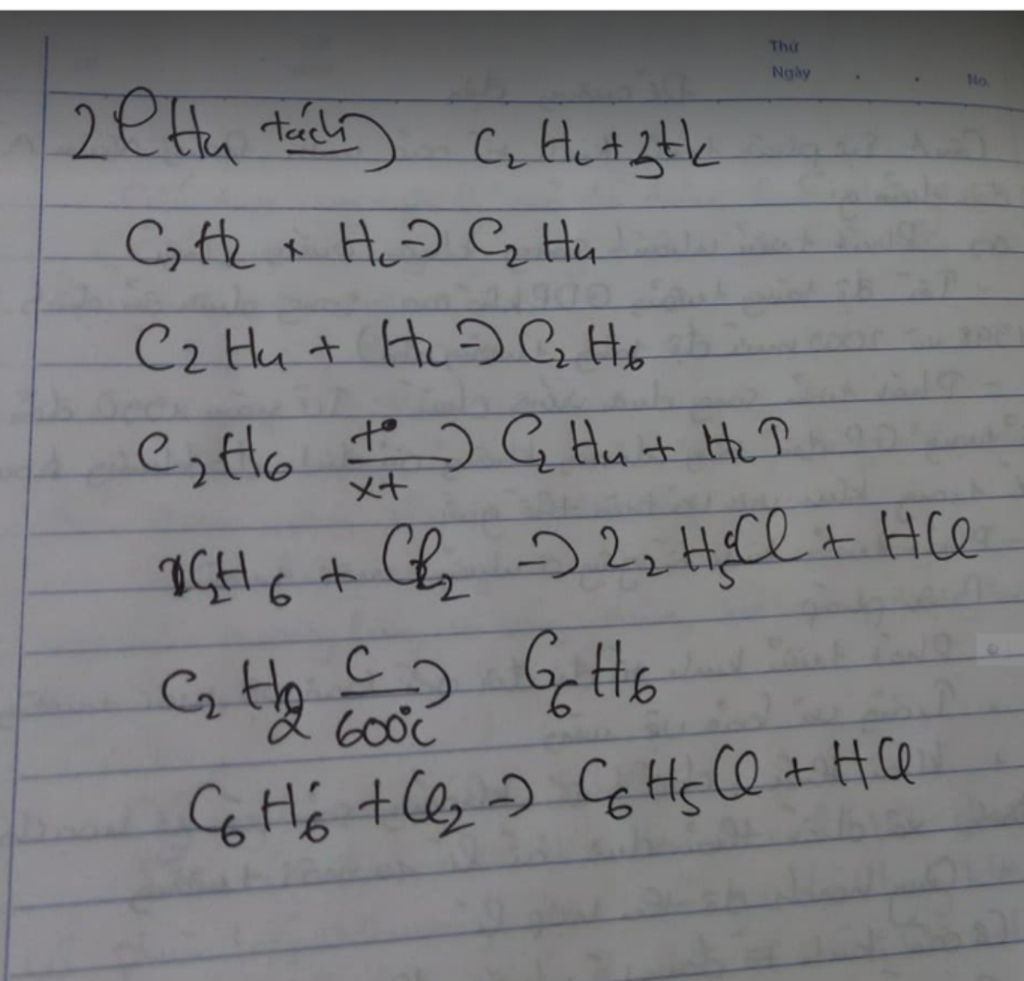 Thứ
Ngày . . No.
2CH₄ tách→ C₂H₂ + 3H₂
C₂H₂ + H₂ → C₂H₄
C₂H₄ + H₂ → C₂H₆
C₂H₆ t°→ xt C₂H₄ + H₂↑
C₂H₆ + Cl₂ → C₂H₅Cl + HCl
C₂H₂ C→ 600°C C₆H₆
C₆H₆ + Cl₂ → C₆H₅Cl + HCl